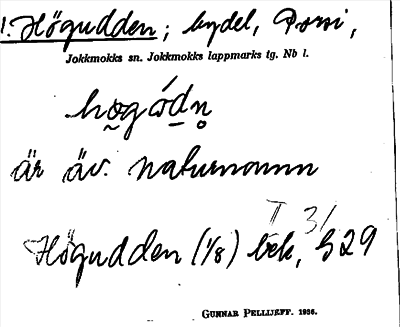 1. Högudden; bydel, Porsi,
Jokkmokks sn. Jokkmokks lappmarks tg. Nb l.
är äv. naturnamn
II 3/
Högudden (1/8) bek, § 29
GUNNAR PELLIJEFF. 1936.